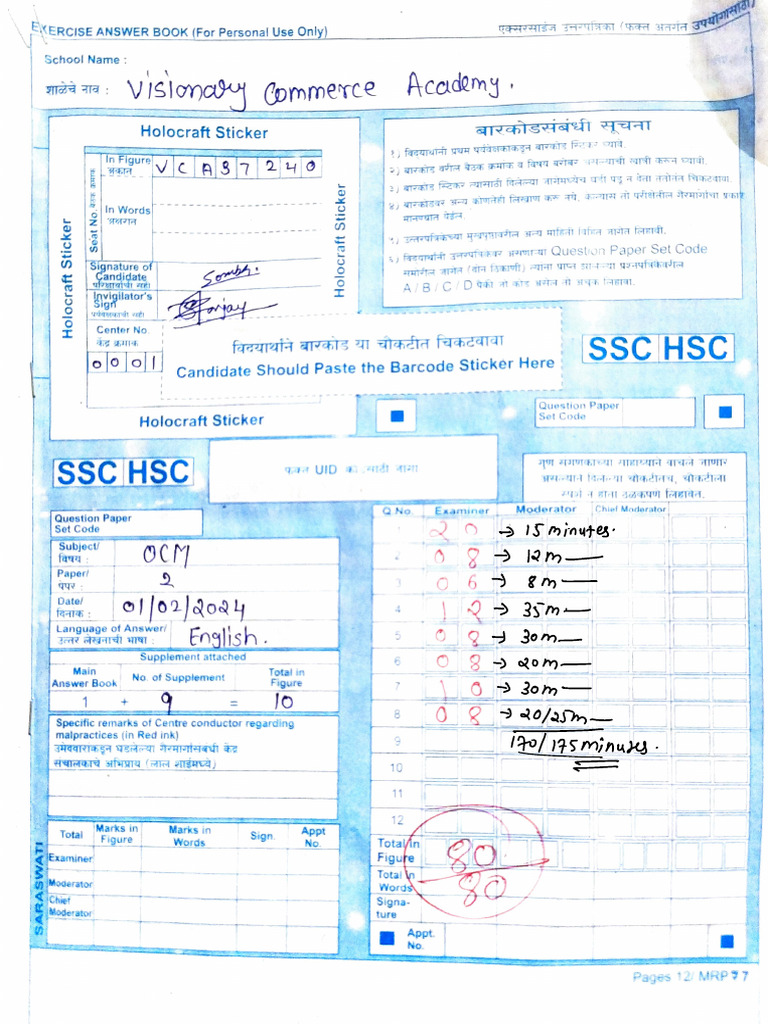 EXERCISE ANSWER BOOK (For Personal Use Only)
एक्सरसाईज उत्तरपत्रिका (फक्त अंतर्गत उपयोगासाठी)
School Name :
शाळेचे नाव : Visionary Commerce Academy.
Holocraft Sticker
Holocraft Sticker
Holocraft Sticker
Seat No. बैठक क्रमांक
In Figure V C A 3 7 2 4 0
अंकात
In Words
अक्षरात
Signature of
Candidate
परिक्षार्थाची सही
Invigilator's
Sign
पर्यवेक्षकाची सही
Center No.
केंद्र क्रमांक
0 0 0 1
Holocraft Sticker
बारकोडसंबंधी सूचना
१) विद्यार्थांनी प्रथम पर्यवेक्षकाकडून बारकोड स्टिकर घ्यावे.
२) बारकोड वरील बैठक क्रमांक व विषय बरोबर असल्याची खात्री करून घ्यावी.
३) बारकोड स्टिकर त्यासाठी दिलेल्या जागेमध्येच घडी पडू न देता चिकटवावा.
४) बारकोडवर अन्य कोणतेही लिखाण करू नये, केल्यास तो परीक्षेतील गैरमार्गाचा प्रकार
मानण्यात येईल.
५) उत्तरपत्रिकेच्या मुखपृष्ठावरील अन्य माहिती विहित जागेत लिहावी.
६) विद्यार्थांनी उत्तरपत्रिकेवर असणाऱ्या Question Paper Set Code
समोरील जागेत (दोन ठिकाणी) त्यांना प्राप्त झालेल्या प्रश्नपत्रिकेवरील
A / B / C / D पैकी जो कोड असेल तो अचूक लिहावा.
विद्यार्थाने बारकोड या चौकटीत चिकटवावा
Candidate Should Paste the Barcode Sticker Here
SSC HSC
Question Paper
Set Code
SSC HSC
फक्त UID जागा
गुण संगणकाच्या साहाय्याने वाचले जाणार
असल्याने दिलेल्या चौकटीतच, चौकटीला
स्पर्श न होता ठळकपणे लिहावेत.
Question Paper
Set Code
Subject/
विषय : OCM
Paper/
पेपर : 2
Date/
दिनांक : 01/02/2024
Language of Answer/
उत्तर लेखनाची भाषा : English.
Supplement attached
Main Answer Book No. of Supplement Total in Figure
1 + 9 = 10
Specific remarks of Centre conductor regarding
malpractices (in Red ink)
उमेदवाराकडून घडलेल्या गैरमार्गासंबंधी केंद्र
संचालकाचे अभिप्राय (लाल शाईमध्ये)
Total Marks in Figure Marks in Words Sign. Appt No.
Examiner
Moderator
Chief
Moderator
SARASWATI
Q.No. Examiner Moderator Chief Moderator
1 20 → 15 minutes.
2 08 → 12 m
3 06 → 8 m
4 12 → 35 m
5 08 → 30 m
6 08 → 20 m
7 10 → 30 m
8 08 → 20/25 m
9 170/175 minutes.
10
11
12
Total in
Figure 80
Total in
Words 80
Signa-
ture
Appt.
No.
Pages 12/ MRP 77